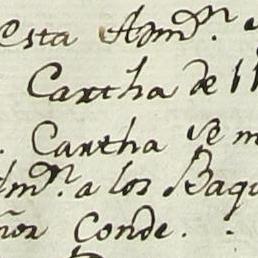 Esta Admᵒⁿ.
Cartha de 11
Cartha se m
dmᵒⁿ. a los Baqu
ñor Conde.